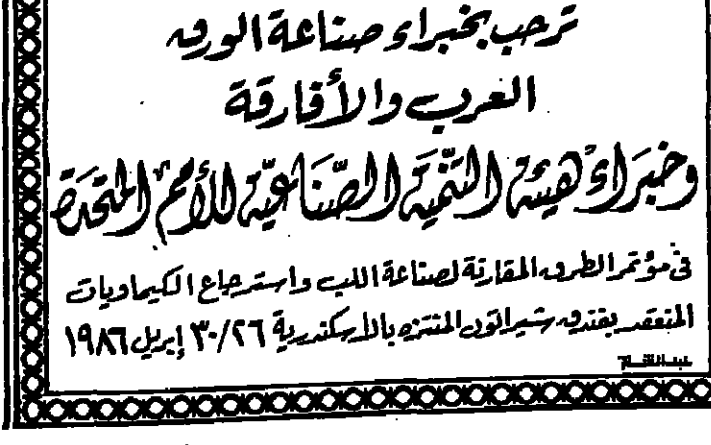 ترحب بخبراء صناعة الورق
العرب والأفارقة
وخبراء هيئة التنمية الصناعية للأمم المتحدة
في مؤتمر الطرق المقارنة لصناعة اللب واسترجاع الكيماويات
المنعقد بفندق شيراتون المنتزه بالإسكندرية ٣٠/٢٦ إبريل ١٩٨٦